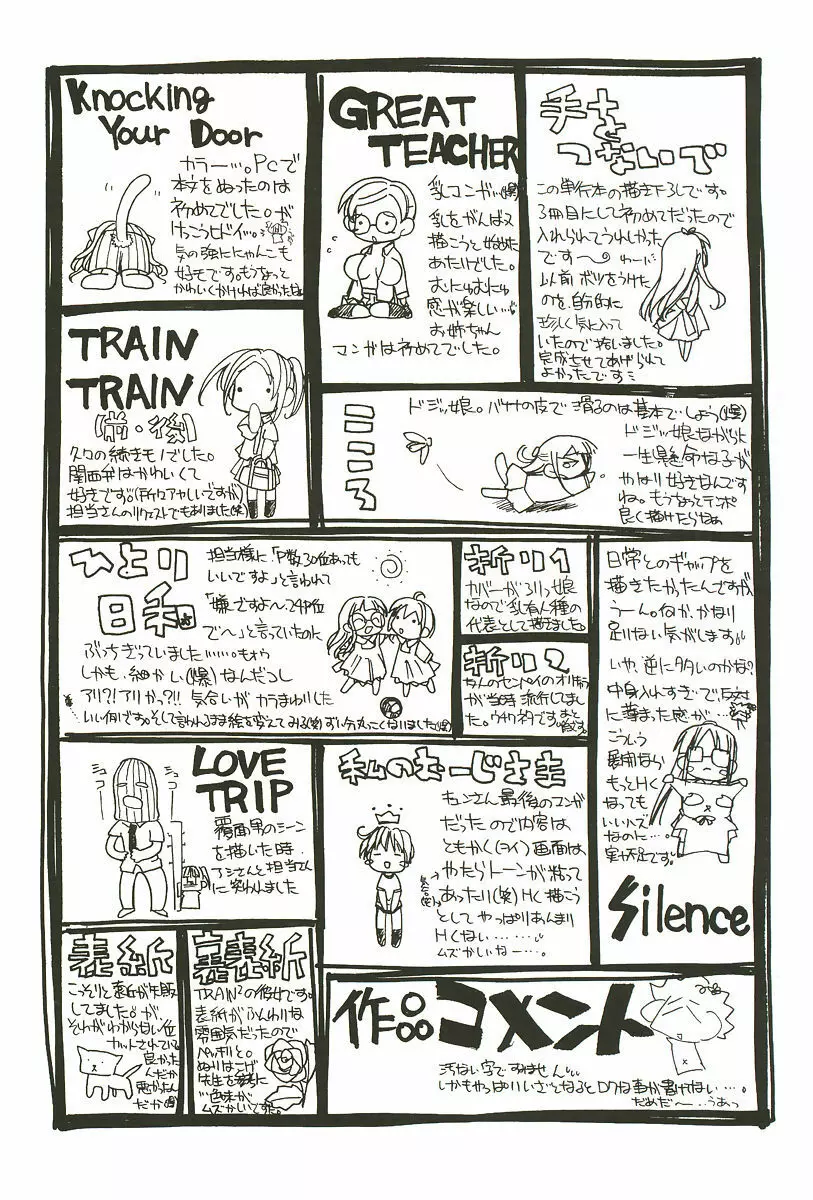 Knocking
Your Door
カラー…。PCで
本文をぬったのは
初めてでした。が
けっこうヒドイ…。
気の強いにゃんこも
好きです。もうちょっと
かわいくかければ良かったな
GREAT
TEACHER
乳コンガ…(爆)
乳をがんばって
描こうと始めた
あたりでした。
むにゅむにゅ
感が楽しい…。
お姉ちゃん
マンガは初めてでした。
手を
つないで
この単行本の描き下ろしです。
3冊目にして初めてだったので
入れられてうれしかった
です〜
わーい
以前ボツをうけた
のを、自分的に
珍しく気に入って
いたので拾いました。
完成させてあげられて
よかったです
TRAIN
TRAIN
(前・後)
久々の続きモノでした。
関西弁はかわいくて
好きです。(チョイアヤしいですが)
担当さんのリクエストでもありました(笑)
こころ
ドジッ娘。バナナの皮で滑るのは基本でしょう(爆)
ドジッ娘ながらも
一生懸命な子が
かなり好きなんです
ね。もうちょっとテンポ
良く描けたらなぁ
ひとり
日和
担当様に「P数30位あっても
いいですよ」と言われて
「嫌ですよ〜24P位
で〜」と言っていたのに
ぶっちぎっていました……。もぉぅ
しかも、細かい(爆)なんだコレ
アリ?!アリかっ?!! 気合いがカラまわりした
いい例です。そして言われるまま絵を変えてみる(笑)ずい分丸っこくなりました(爆)
折り1
カバーがろりっ娘
なので乳有人種の
代表として描きました。
折り2
うちのセンパイのオリキャラ
が当時流行してまし
た。ウチワ的です。
日常とのギャップを
描きたかったんですが
うーん。何か、かなり
足りない気がします。
いや、逆に多いのかな?
中身入れすぎで反対
に薄まった感が…
こういう
愛情なら
もっとHく
なっても
いいハズ
なのに…。
実力不足です。
Silence
LOVE
TRIP
覆面男のシーン
を描いた時、
アシさんと担当さん
に笑われました
シュコ
シュコ
私のおーじさま
キュンさん最後のマンガ
だったので内容は
ともかく(コイ)画面は
やたらトーンが粘って
あったり(笑)Hく描こう
としてやっぱりあんまり
Hくない……。
ムズかしいねー…。
表紙
こっそりと表紙が年賀
してました。が
それがわからない位
カットされていて
良かった
んだか
悪かったん
だか(爆)
裏表紙
TRAIN²の彼女です。
表紙がふんわりな
雰囲気だったので
ペッキリと。
ぬりはこげ
先生を参考に
色味が
ムズかしいです。
作品コメント
汚ない字ですみません
しかもやっぱりいざとなるとロクな事が書けない…。
だめだ〜…うぁっ